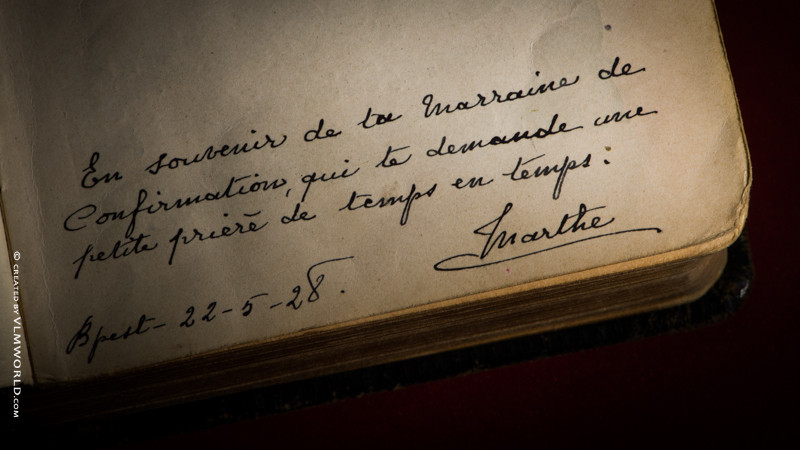 En souvenir de ta Marraine de
Confirmation, qui te demande une
petite prière de temps en temps.
Marthe
Bpest - 22-5-28.
© CREATED BY VLMWORLD.COM